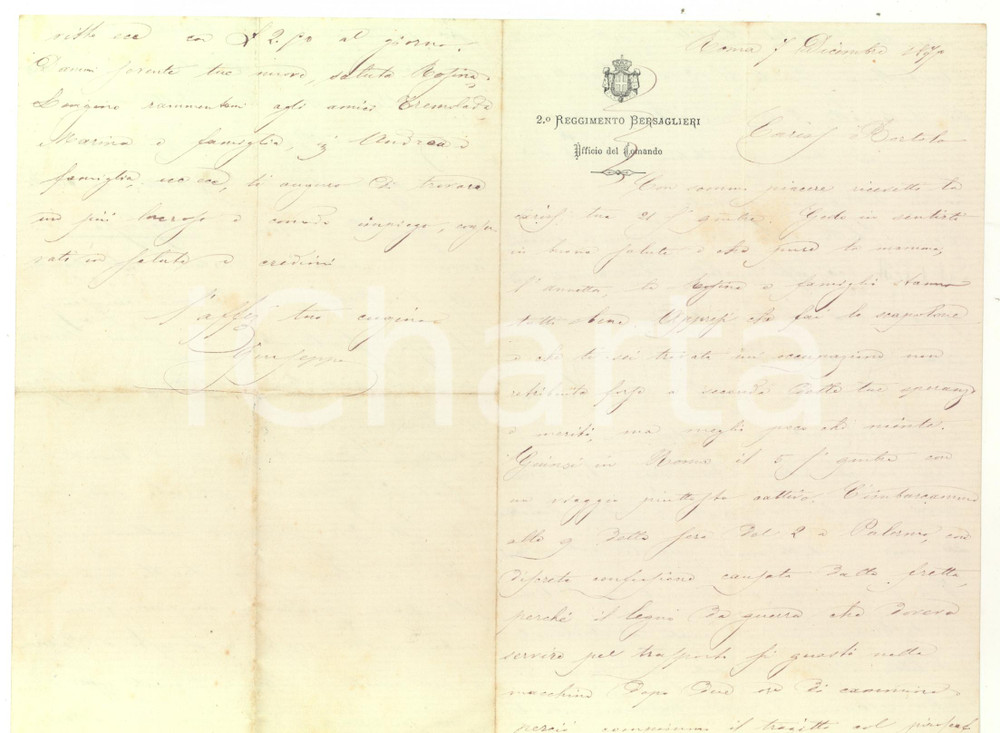 Roma 7 Dicembre 1879
2.º REGGIMENTO BERSAGLIERI
Ufficio del Comando
Cariss. Bortolo
Con sommo piacere ricevetti la
cariss. tua 21 s. Godo in sentirti
in buona salute e che pure la mamma,
l'annetta, la Rosina e famiglia stanno
tutti bene. Appresi che fai lo scapolone
e che ti sei trovato un'occupazione non
retribuita forse a seconda delle tue speranze
e meriti, ma meglio poco che niente.
Giunsi in Roma il 5 con
un viaggio piuttosto cattivo. C'imbarcammo
alle 9 della sera del 2 a Palermo, con
discreta confusione causata dalla fretta,
perchè il legno da guerra che doveva
servire pel trasporto si guastò nella
macchina dopo due ore di cammino,
perciò il tragitto col
con £ 2.50 al giorno.
Dammi sovente tue nuove, saluta Rosina,
Longino rammentami agli amici Tremolada
Marina e famiglia, Andrea e
famiglia, ecc ecc, ti auguro di trovare
un più lucroso e comodo impiego, conser
vati in salute e credimi
l'affez tuo cugino
Giuseppe
iCharta